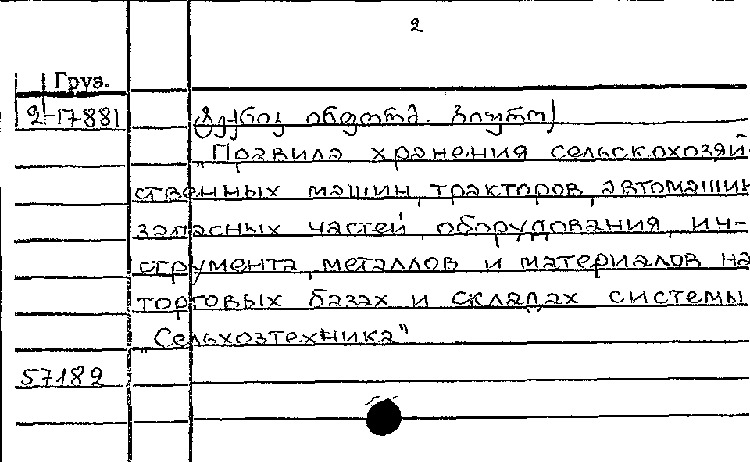 2
Груз.
2-17881
„Правила хранения сельскохозяй-
ственных машин, тракторов, автомашин
запасных частей, оборудования, ин-
струмента, металлов и материалов на
торговых базах и складах системы
„Сельхозтехника"
57182